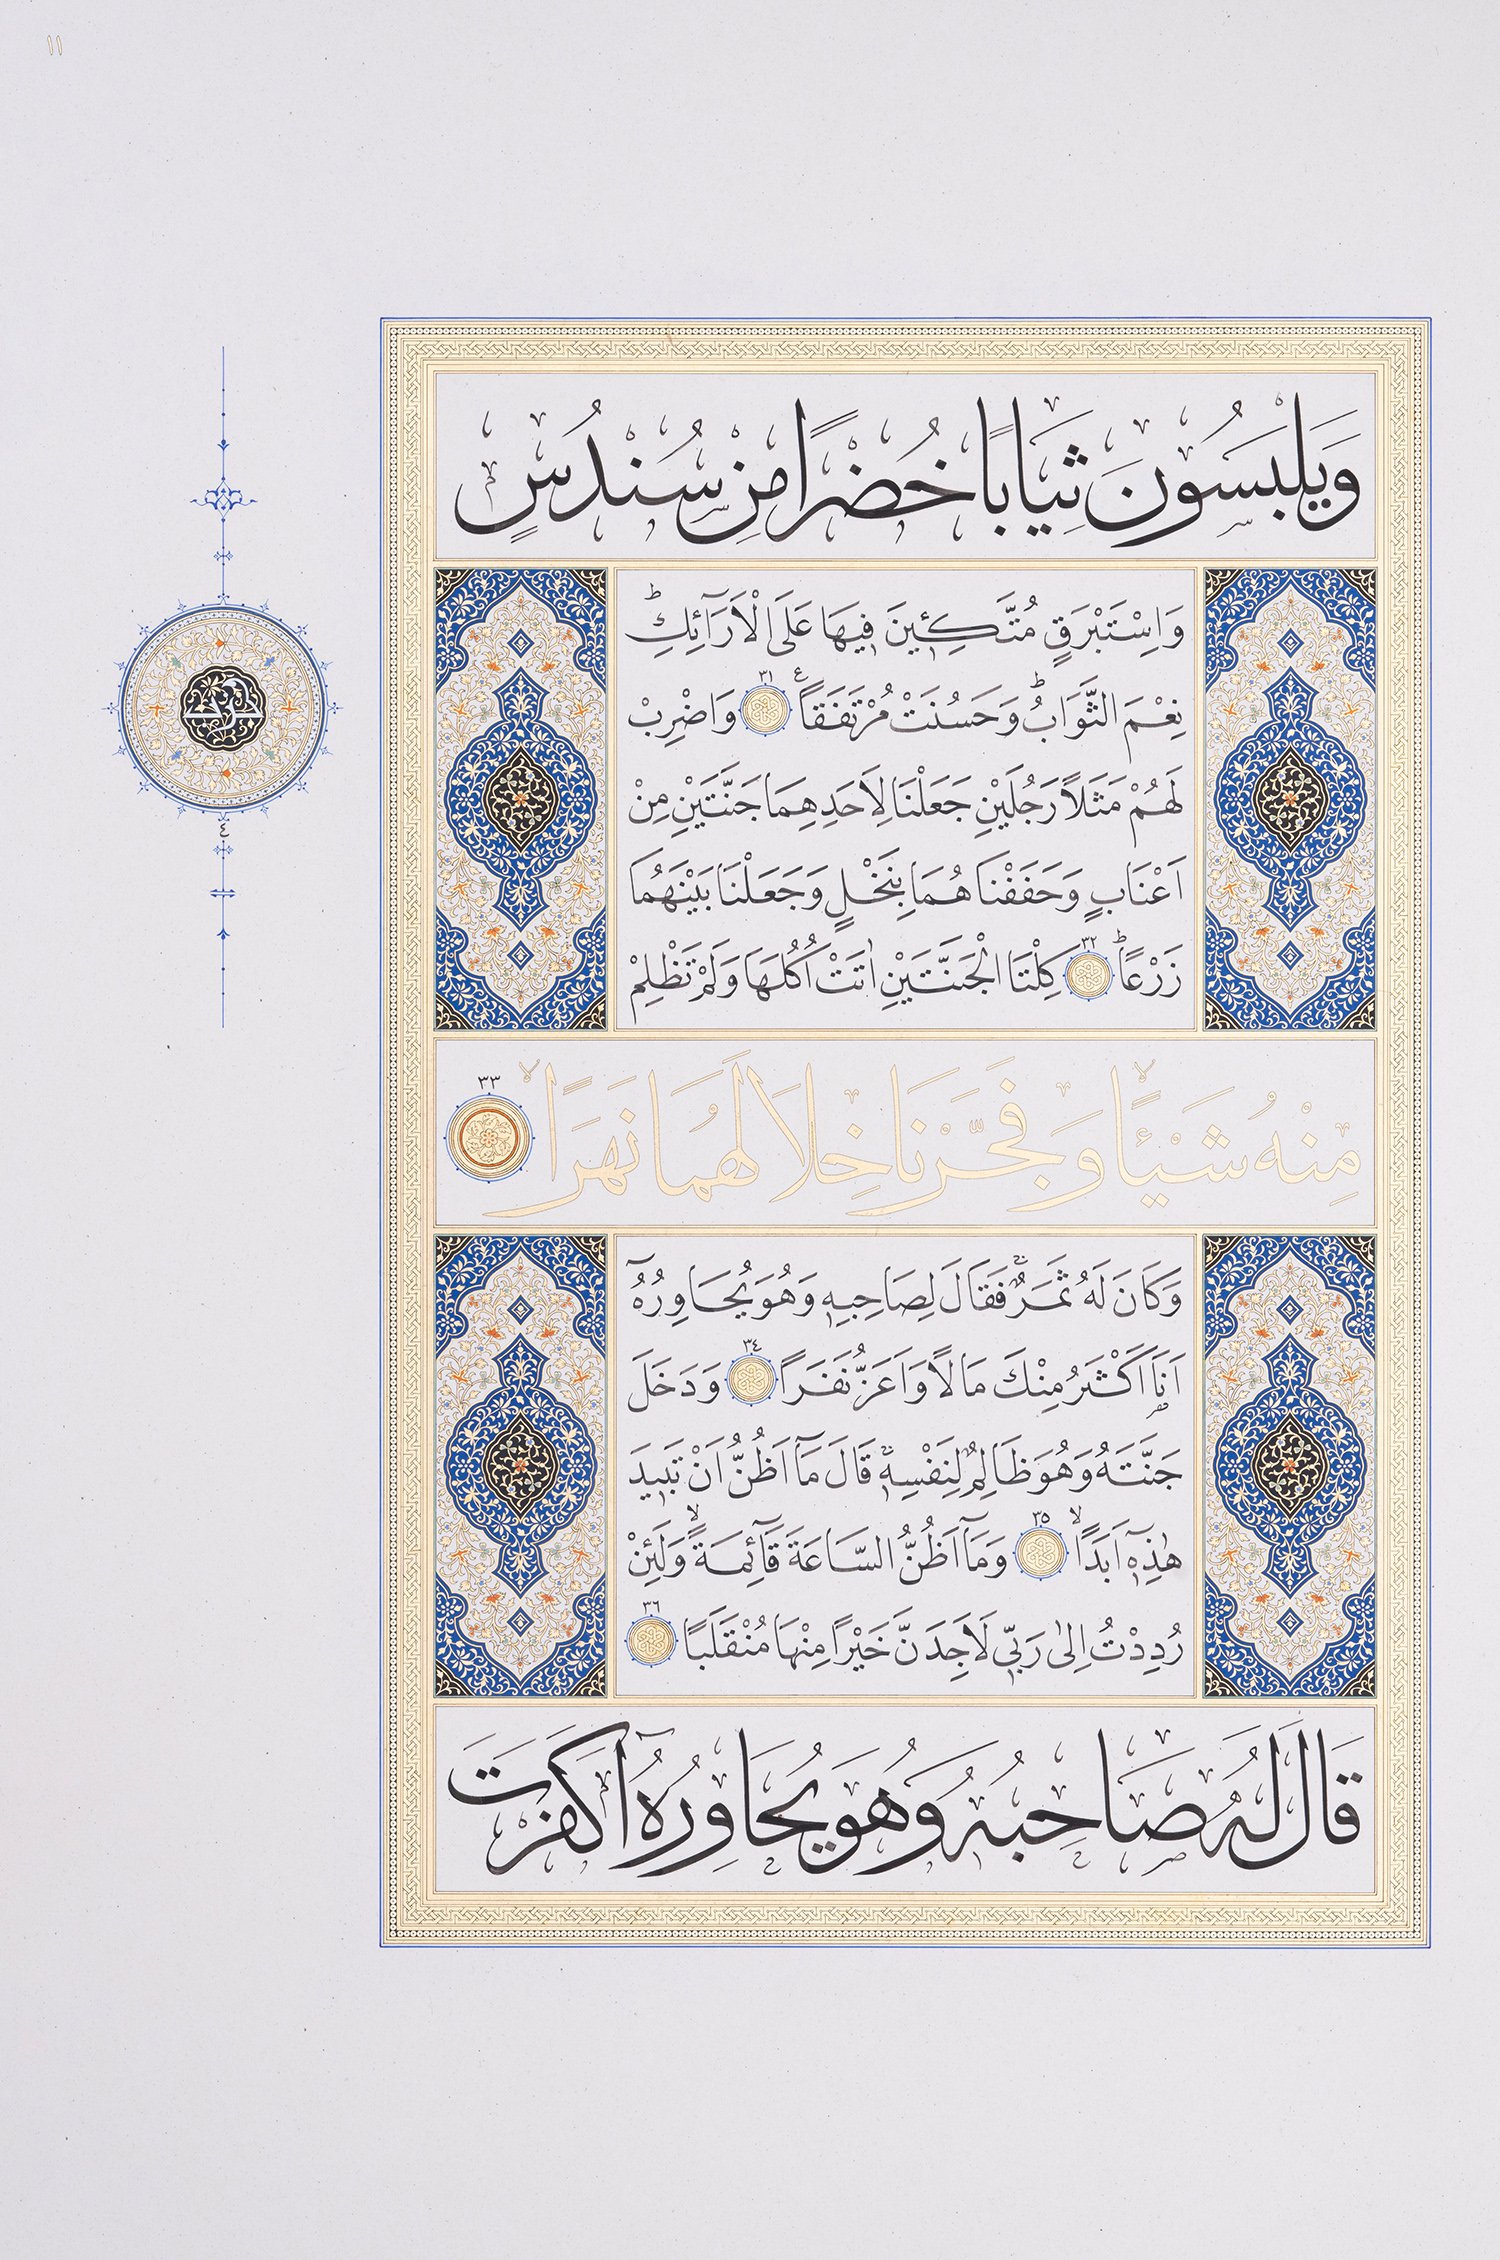 ١١
وَيَلْبَسُونَ ثِيَابًا خُضْرًا مِنْ سُنْدُسٍ
وَاِسْتَبْرَقٍ مُتَّكِـِٔينَ فٖيهَا عَلَى الْاَرَٓائِكِؕ
نِعْمَ الثَّوَابُؕ وَحَسُنَتْ مُرْتَفَقًاࣖ ٣١ وَاضْرِبْ
لَهُمْ مَثَلًا رَجُلَيْنِ جَعَلْنَا لِاَحَدِهِمَا جَنَّتَيْنِ مِنْ
اَعْنَابٍ وَحَفَفْنَاهُمَا بِنَخْلٍ وَجَعَلْنَا بَيْنَهُمَا
زَرْعًاؕ ٣٢ كِلْتَا الْجَنَّتَيْنِ اٰتَتْ اُكُلَهَا وَلَمْ تَظْلِمْ
مِنْهُ شَيْـًٔاۙ وَفَجَّرْنَا خِلَالَهُمَا نَهَرًاۙ ٣٣
وَكَانَ لَهُ ثَمَرٌۚ فَقَالَ لِصَاحِبِهٖ وَهُوَ يُحَاوِرُهُٓ
اَنَا۬ اَكْثَرُ مِنْكَ مَالًا وَاَعَزُّ نَفَرًا ٣٤ وَدَخَلَ
جَنَّتَهُ وَهُوَ ظَالِمٌ لِنَفْسِهٖۚ قَالَ مَٓا اَظُنُّ اَنْ تَبٖيدَ
هٰذِهٖٓ اَبَدًاۙ ٣٥ وَمَٓا اَظُنُّ السَّاعَةَ قَٓائِمَةًۙ وَلَئِنْ
رُدِدْتُ اِلٰى رَبّٖي لَاَجِدَنَّ خَيْرًا مِنْهَا مُنْقَلَبًا ٣٦
قَالَ لَهُ صَاحِبُهُ وَهُوَ يُحَاوِرُهُٓ اَكَفَرْتَ
حزب
٤